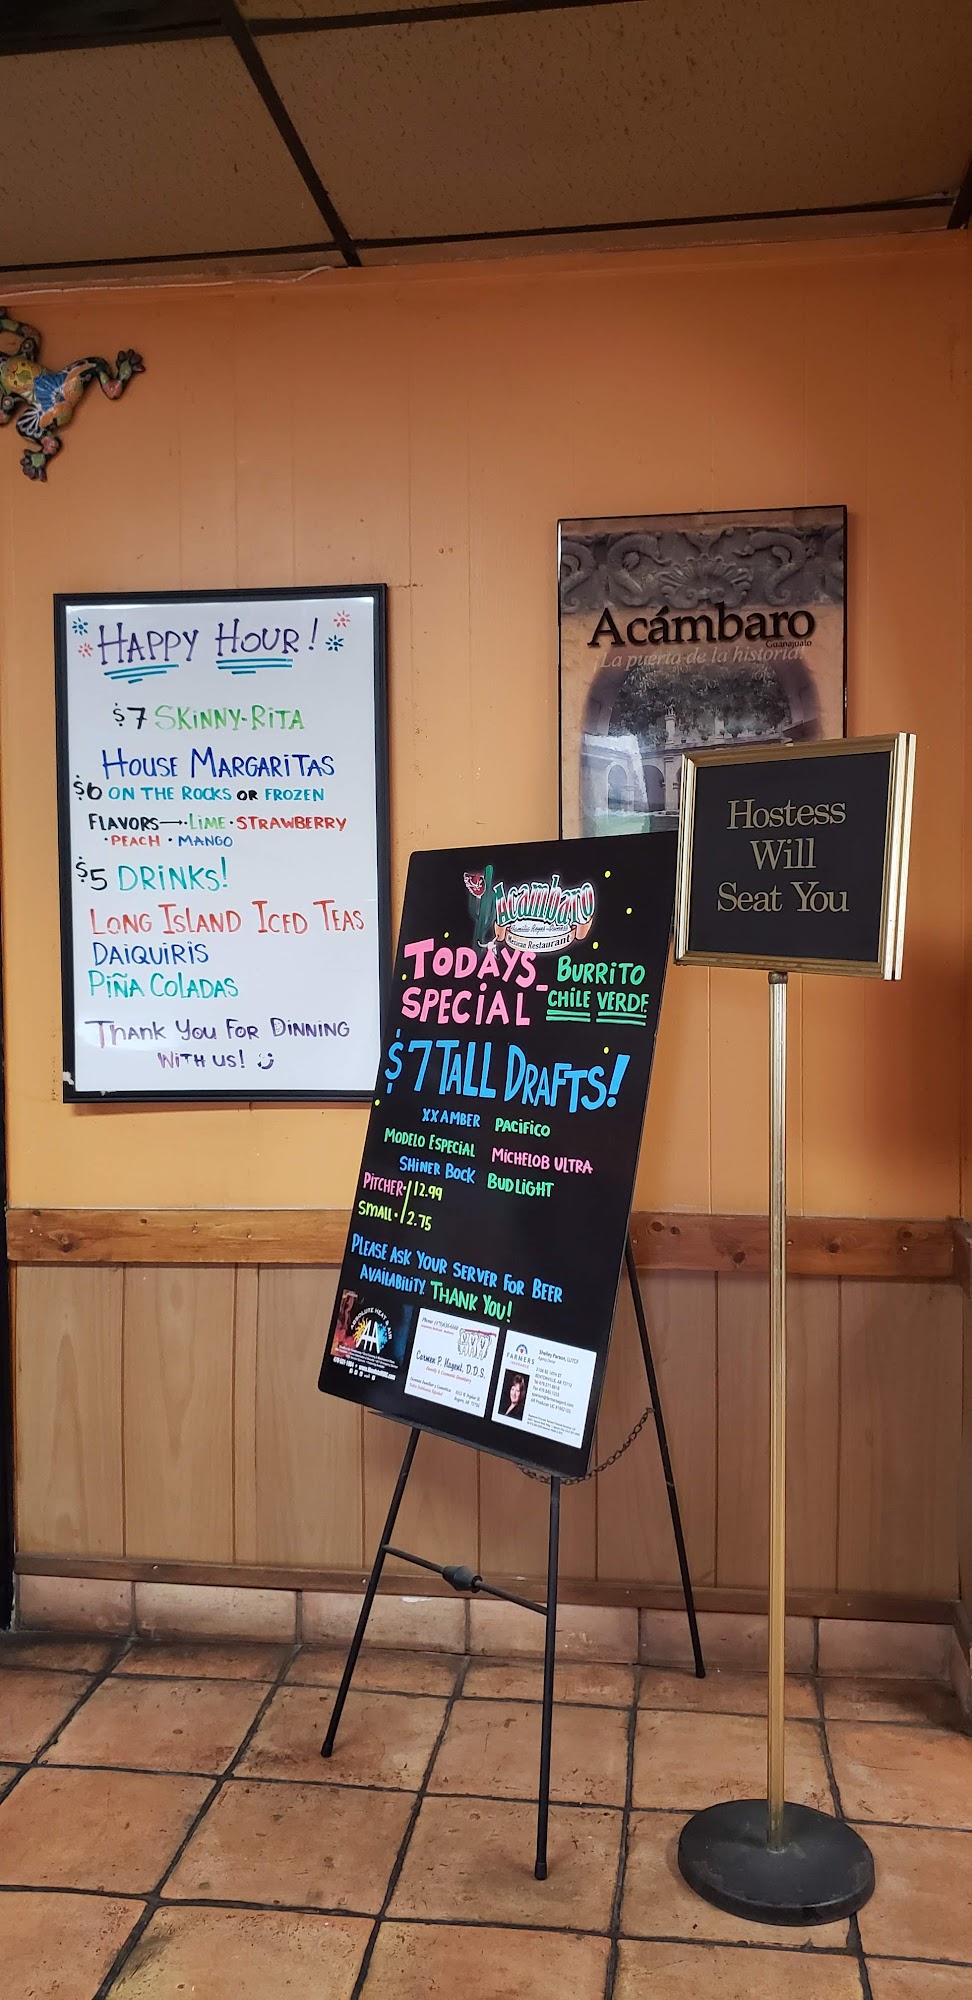 HAPPY HOUR!
$7 SKINNY-RITA
HOUSE MARGARITAS
$6 ON THE ROCKS OR FROZEN
FLAVORS → · LIME · STRAWBERRY
· PEACH · MANGO
$5 DRINKS!
LONG ISLAND ICED TEAS
DAIQUIRIS
PIÑA COLADAS
THANK YOU FOR DINNING
WITH US!
Acámbaro
Guanajuato
¡La puerta de la historia!
Hostess
Will
Seat You
Acambaro
Mexican Restaurant
TODAYS- BURRITO
SPECIAL CHILE VERDE
$7 TALL DRAFTS!
XX AMBER PACIFICO
MODELO ESPECIAL MICHELOB ULTRA
SHINER BOCK BUD LIGHT
PITCHER· 12.99
SMALL· 2.75
PLEASE ASK YOUR SERVER FOR BEER
AVAILABILITY. THANK YOU!
ABSOLUTE HEAT & AIR
Carmen P. Nugent, D.D.S.
Family & Cosmetic Dentistry
FARMERS
INSURANCE
Shelley Parson, LUTCF